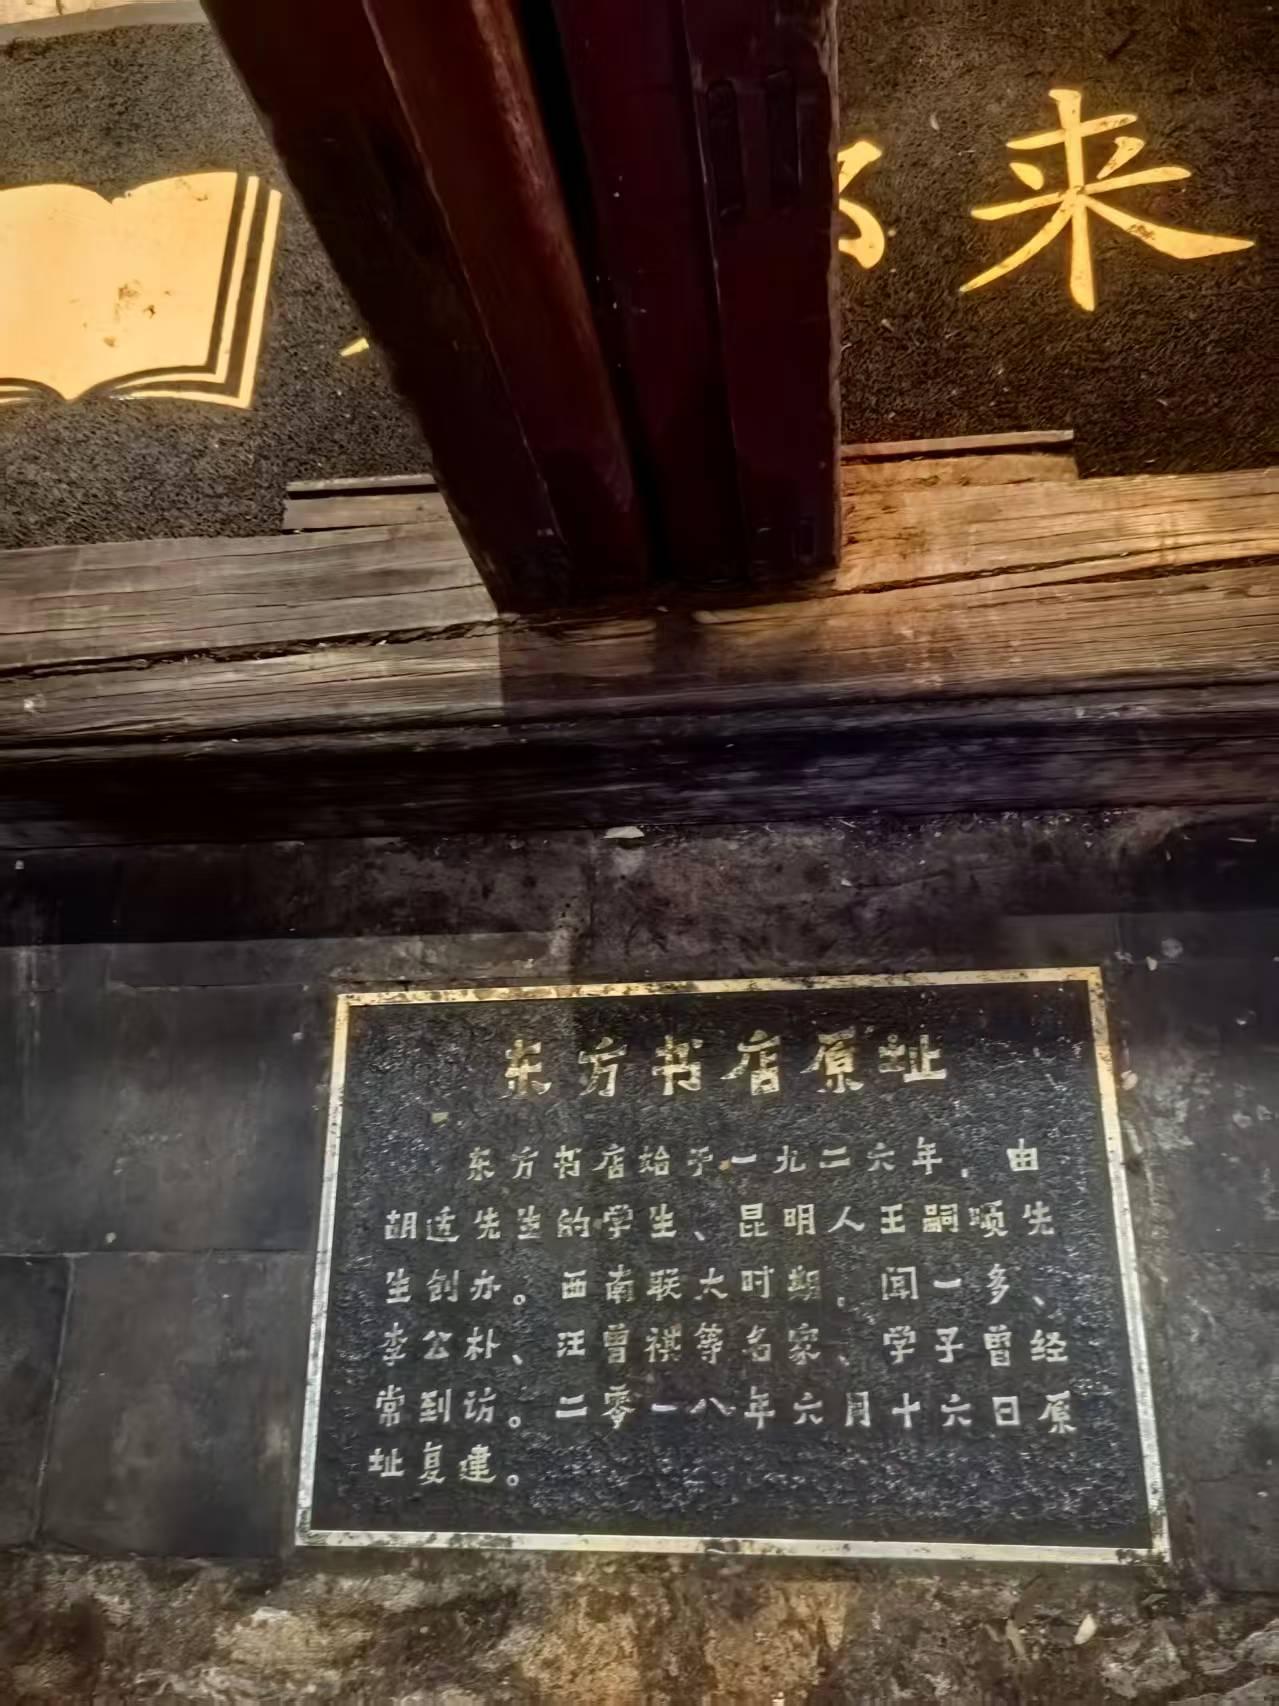 来
东方书店原址
东方书店始于一九二六年，由
胡适先生的学生、昆明人王嗣顺先
生创办。西南联大时期，闻一多、
李公朴、汪曾祺等名家、学子曾经
常到访。二零一八年六月十六日原
址复建。